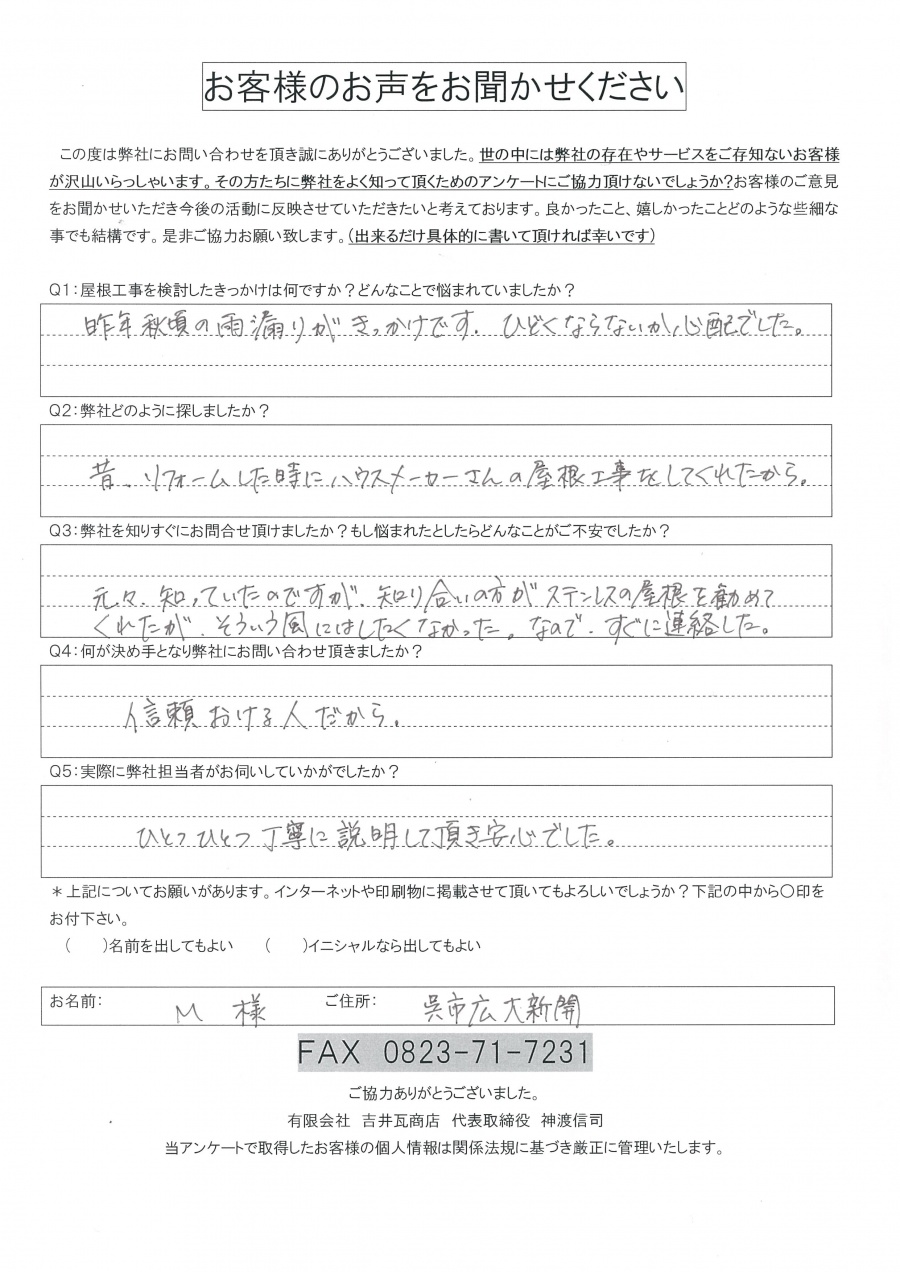 お客様のお声をお聞かせください
この度は弊社にお問い合わせを頂き誠にありがとうございました。世の中には弊社の存在やサービスをご存知ないお客様
が沢山いらっしゃいます。その方たちに弊社をよく知って頂くためのアンケートにご協力頂けないでしょうか?お客様のご意見
をお聞かせいただき今後の活動に反映させていただきたいと考えております。良かったこと、嬉しかったことどのような些細な
事でも結構です。是非ご協力お願い致します。(出来るだけ具体的に書いて頂ければ幸いです)
Q1:屋根工事を検討したきっかけは何ですか?どんなことで悩まれていましたか?
昨年秋頃の雨漏りがきっかけです。ひどくならないか心配でした。
Q2:弊社どのように探しましたか?
昔、リフォームした時にハウスメーカーさんの屋根工事をしてくれたから。
Q3:弊社を知りすぐにお問合せ頂けましたか?もし悩まれたとしたらどんなことがご不安でしたか?
元々、知っていたのですが、知り合いの方がステンレスの屋根を勧めて
くれたが、そういう風にはしたくなかった。なので、すぐに連絡した。
Q4:何が決め手となり弊社にお問い合わせ頂きましたか?
信頼おける人だから。
Q5:実際に弊社担当者がお伺いしていかがでしたか?
ひとつひとつ丁寧に説明して頂き安心でした。
*上記についてお願いがあります。インターネットや印刷物に掲載させて頂いてもよろしいでしょうか?下記の中から〇印を
お付下さい。
(　　)名前を出してもよい　　(　　)イニシャルなら出してもよい
お名前: M 様 ご住所: 呉市広大新開
FAX 0823-71-7231
ご協力ありがとうございました。
有限会社 吉井瓦商店 代表取締役 神渡信司
当アンケートで取得したお客様の個人情報は関係法規に基づき厳正に管理いたします。